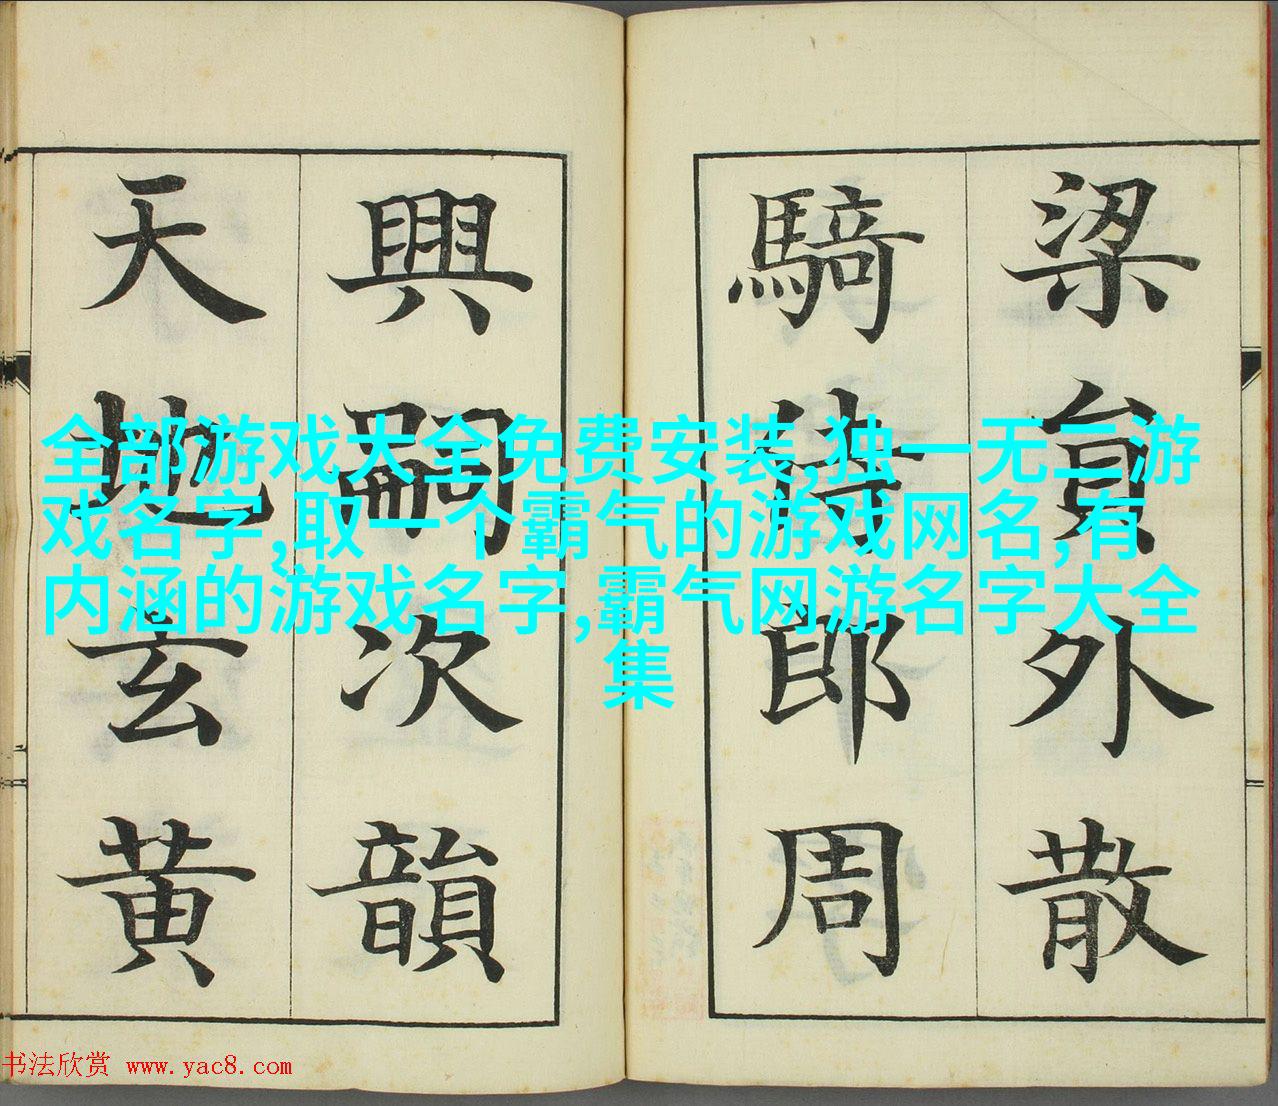 梁貟外散
騎侍郎周
興嗣次韻
天地玄黄
全部游戏大全免费安装,独一无二游
戏名字,取一个霸气的游戏网名,有
内涵的游戏名字,霸气网游名字大全
集
书法欣赏 www.yac8.com